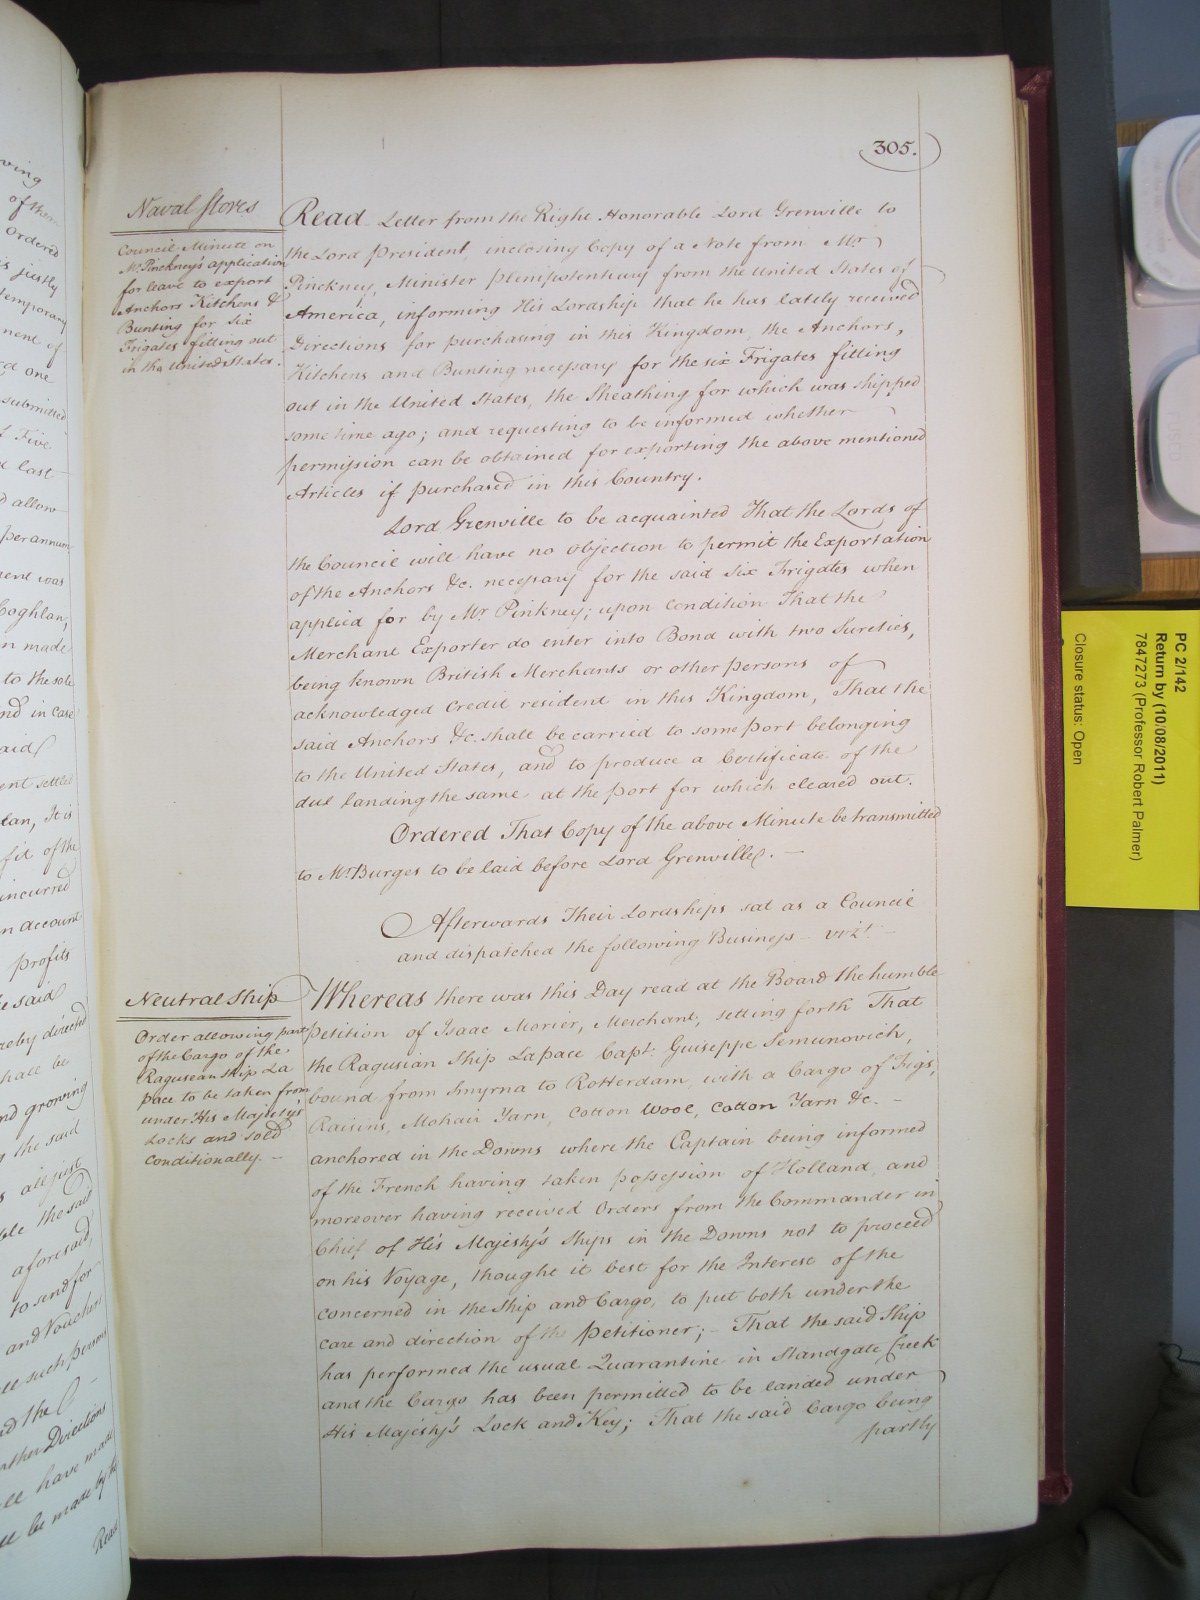 305.
Naval Stores
Council Minute on
Mr. Pinckney's application
for leave to export
Anchors Kitchens &
Bunting for Six
Frigates fitting out
in the United States.
Read Letter from the Right Honorable Lord Grenville to
the Lord President, inclosing Copy of a Note from Mr
Pinckney, Minister Plenipotentiary from the United States of
America, informing His Lordship that he has lately received
Directions for purchasing in this Kingdom, the Anchors,
Kitchens and Bunting necessary for the six Frigates fitting
out in the United States, the Sheathing for which was shipped
some time ago; and requesting to be informed whether
permission can be obtained for exporting the above mentioned
Articles if purchased in this Country.
Lord Grenville to be acquainted That the Lords of
the Council will have no objection to permit the Exportation
of the Anchors &c. necessary for the said six Frigates when
applied for by Mr. Pinkney; upon condition That the
Merchant Exporter do enter into Bond with two Sureties,
being known British Merchants or other persons of
acknowledged Credit resident in this Kingdom, That the
said Anchors &c. shall be carried to some port belonging
to the United States, and to produce a Certificate of the
due landing the same at the port for which cleared out.
Ordered That Copy of the above Minute be transmitted
to Mr. Burges to be laid before Lord Grenville. —
Afterwards Their Lordships sat as a Council
and dispatched the following Business — vizt. —
Neutral Ship
Order allowing part
of the Cargo of the
Ragusean ship La
Pace to be taken from
under His Majesty's
Locks and sold
conditionally. —
Whereas there was this Day read at the Board the humble
Petition of Isaac Morier, Merchant, setting forth That
the Ragusian Ship La pace Capt. Guiseppe Semunovich,
bound from Smyrna to Rotterdam, with a Cargo of Figs,
Raisins, Mohair Yarn, Cotton Wool, Cotton Yarn &c. —
anchored in the Downs where the Captain being informed
of the French having taken possession of Holland, and
moreover having received Orders from the Commander in
Chief of His Majesty's Ships in the Downs not to proceed
on his Voyage, thought it best for the Interest of the
concerned in the Ship and Cargo, to put both under the
care and direction of the Petitioner; — That the said Ship
has performed the usual Quarantine in Standgate Creek
and the Cargo has been permitted to be landed under
His Majesty's Lock and Key; That the said Cargo being
partly
PC 2/142
Return by (10/08/2011)
7847273 (Professor Robert Palmer)
Closure status: Open
ordered
justly
temporary
one
submitted
Five
last
allow
per annum
was
Coghlan,
made
to the sole
and in case
settled
It is
of the
incurred
account
profits
said
directed
shall be
and growing
the said
all just
the said
aforesaid,
to send for
and Vouchers
such persons
and the
Directions
have made
be made by the
Read